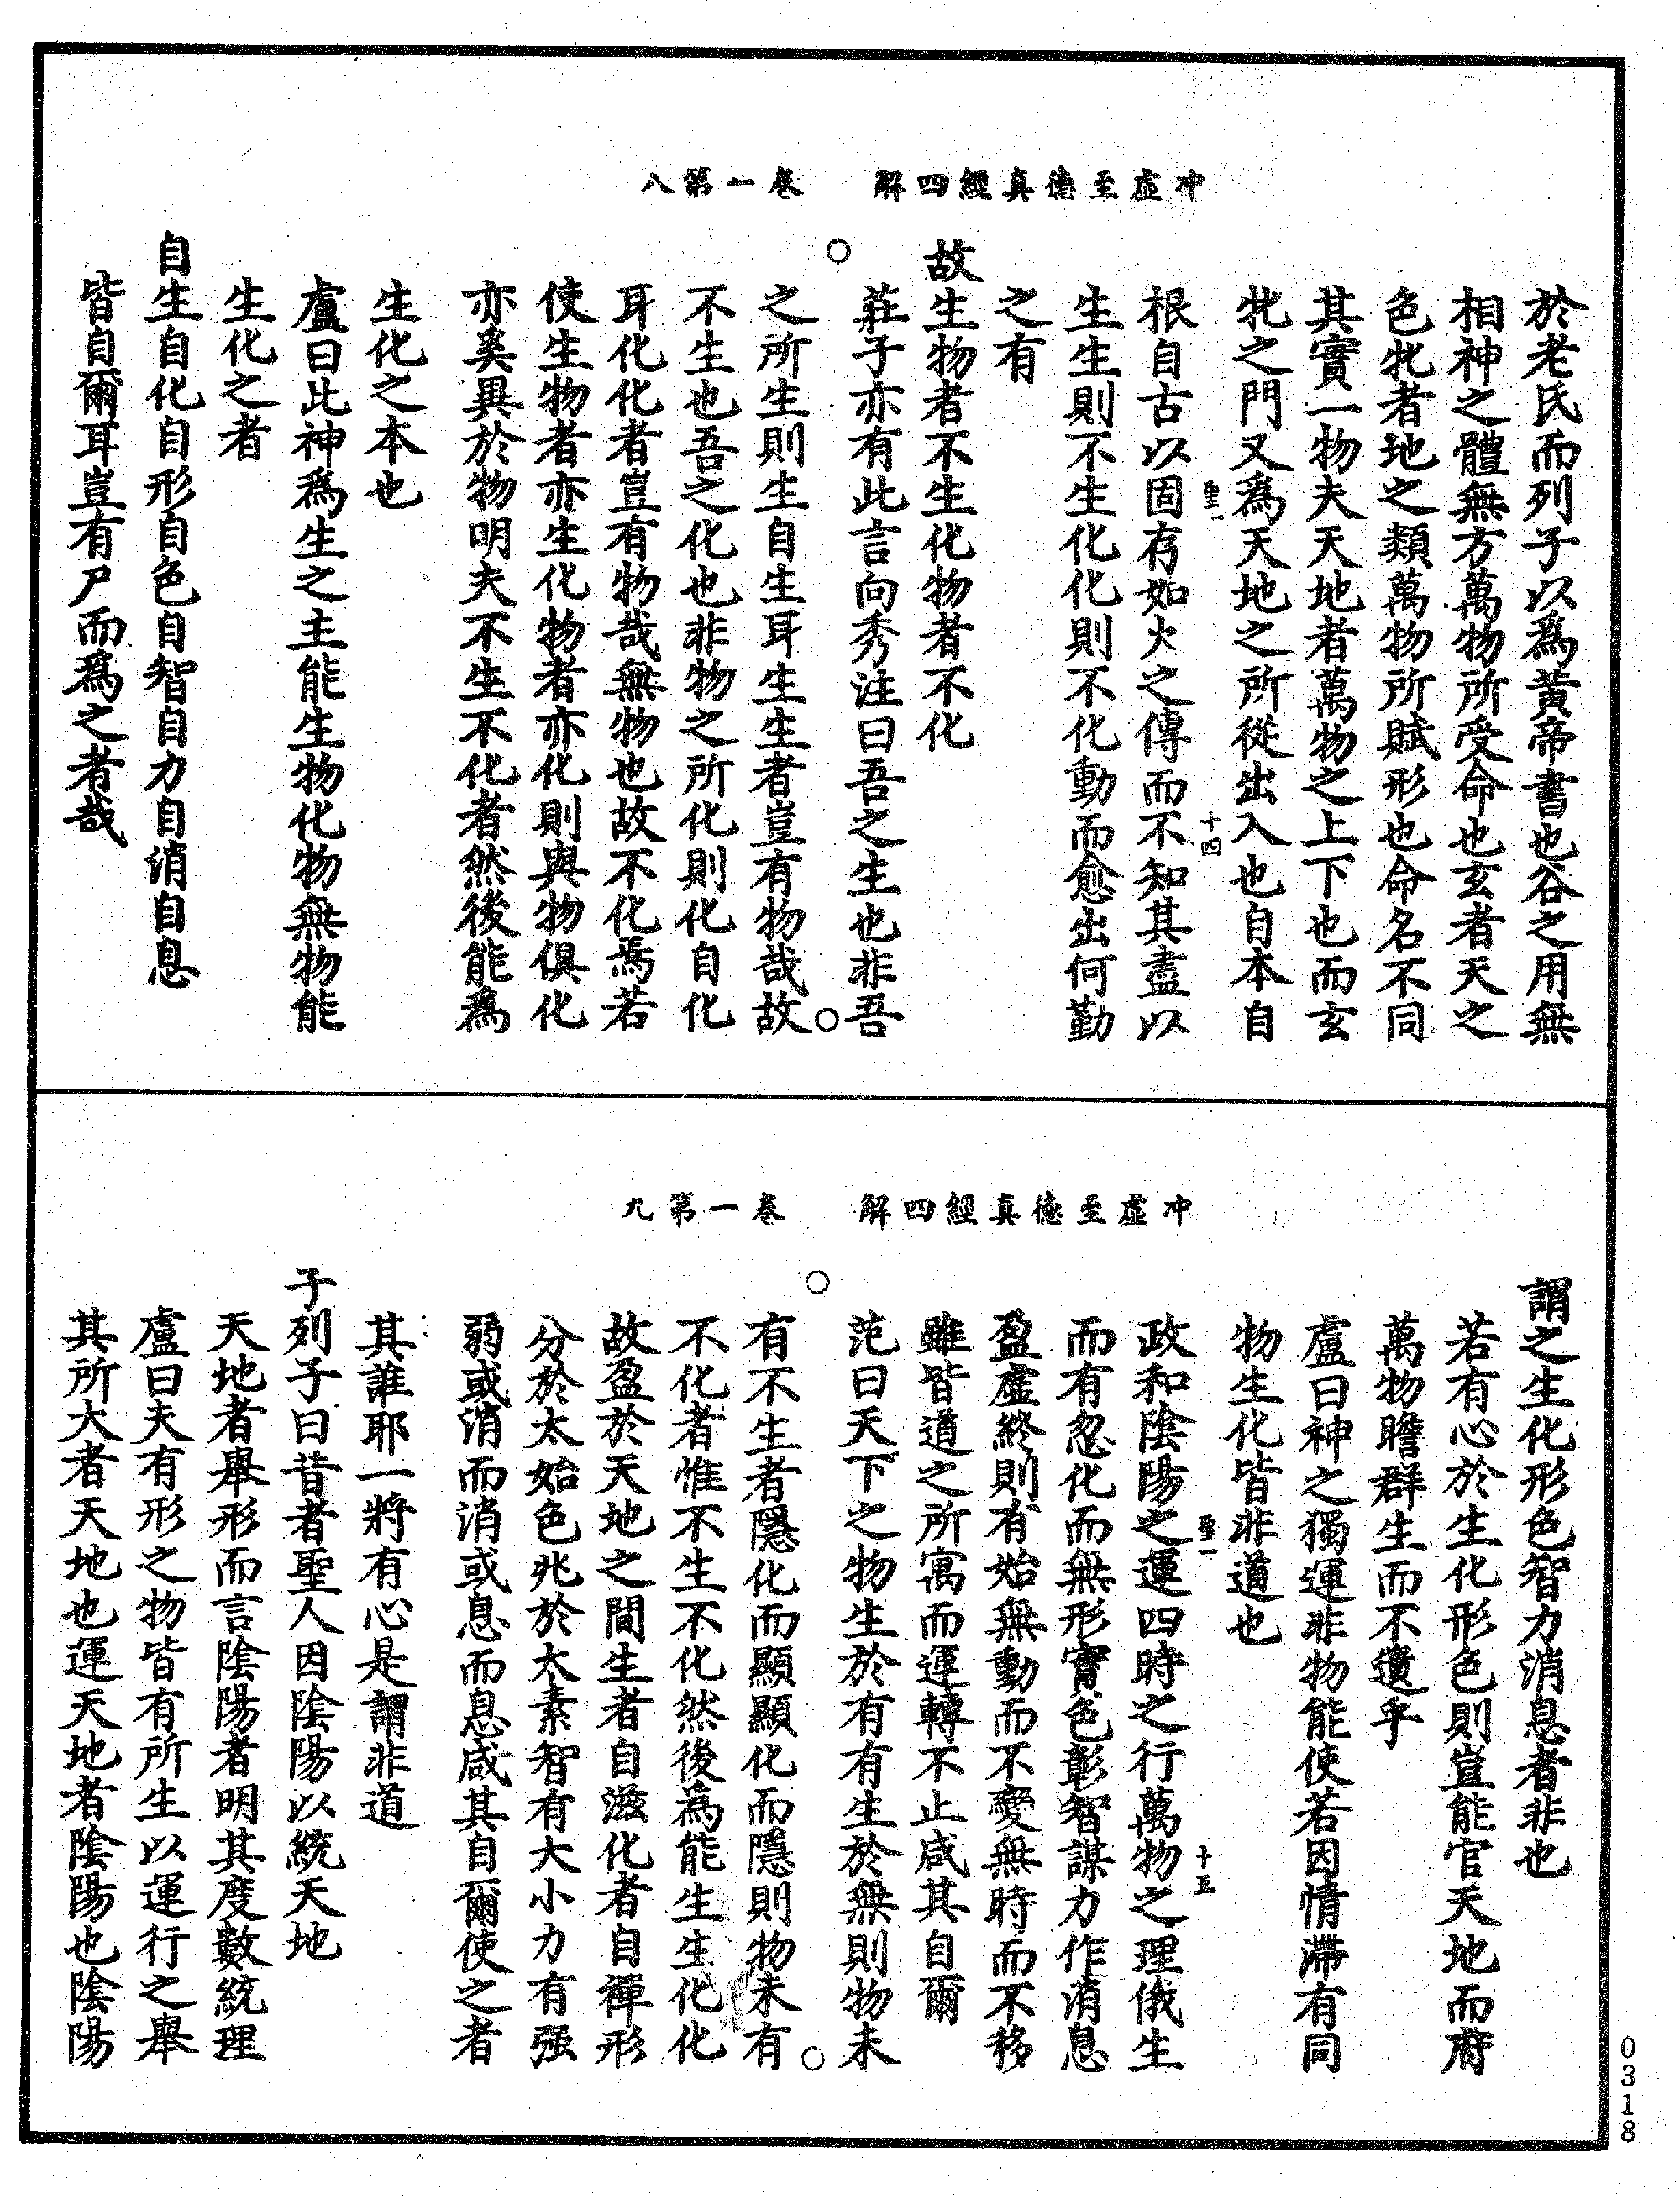 冲虛至德真經四解　卷一第八
於老氏而列子以爲黃帝書也谷之用無
相神之體無方萬物所受命也玄者天之
色牝者地之類萬物所賦形也命名不同
其實一物夫天地者萬物之上下也而玄
牝之門又爲天地之所從出入也自本自
聖一　十四
根自古以固存如火之傳而不知其盡以
生生則不生化化則不化動而愈出何勤
之有
故生物者不生化物者不化
莊子亦有此言向秀注曰吾之生也非吾
之所生則生自生耳生生者豈有物哉故
不生也吾之化也非物之所化則化自化
耳化化者豈有物哉無物也故不化焉若
使生物者亦生化物者亦化則與物俱化
亦奚異於物明夫不生不化者然後能爲
生化之本也
盧曰此神爲生之主能生物化物無物能
生化之者
自生自化自形自色自智自力自消自息
皆自爾耳豈有尸而爲之者哉
冲虛至德真經四解　卷一第九
謂之生化形色智力消息者非也
若有心於生化形色則豈能官天地而府
萬物瞻群生而不遺乎
盧曰神之獨運非物能使若因情滯有同
物生化皆非道也
聖一　十五
政和陰陽之運四時之行萬物之理俄生
而有忽化而無形實色彰智謀力作消息
盈虛終則有始無動而不變無時而不移
雖皆道之所寓而運轉不止咸其自爾
范曰天下之物生於有有生於無則物未
有不生者隱化而顯顯化而隱則物未有
不化者惟不生不化然後爲能生生化化
故盈於天地之間生者自滋化者自禪形
分於太始色兆於太素智有大小力有强
弱或消而消或息而息咸其自爾使之者
其誰耶一將有心是謂非道
子列子曰昔者聖人因陰陽以統天地
天地者舉形而言陰陽者明其度數統理
盧曰夫有形之物皆有所生以運行之舉
其所大者天地也運天地者陰陽也陰陽
0318